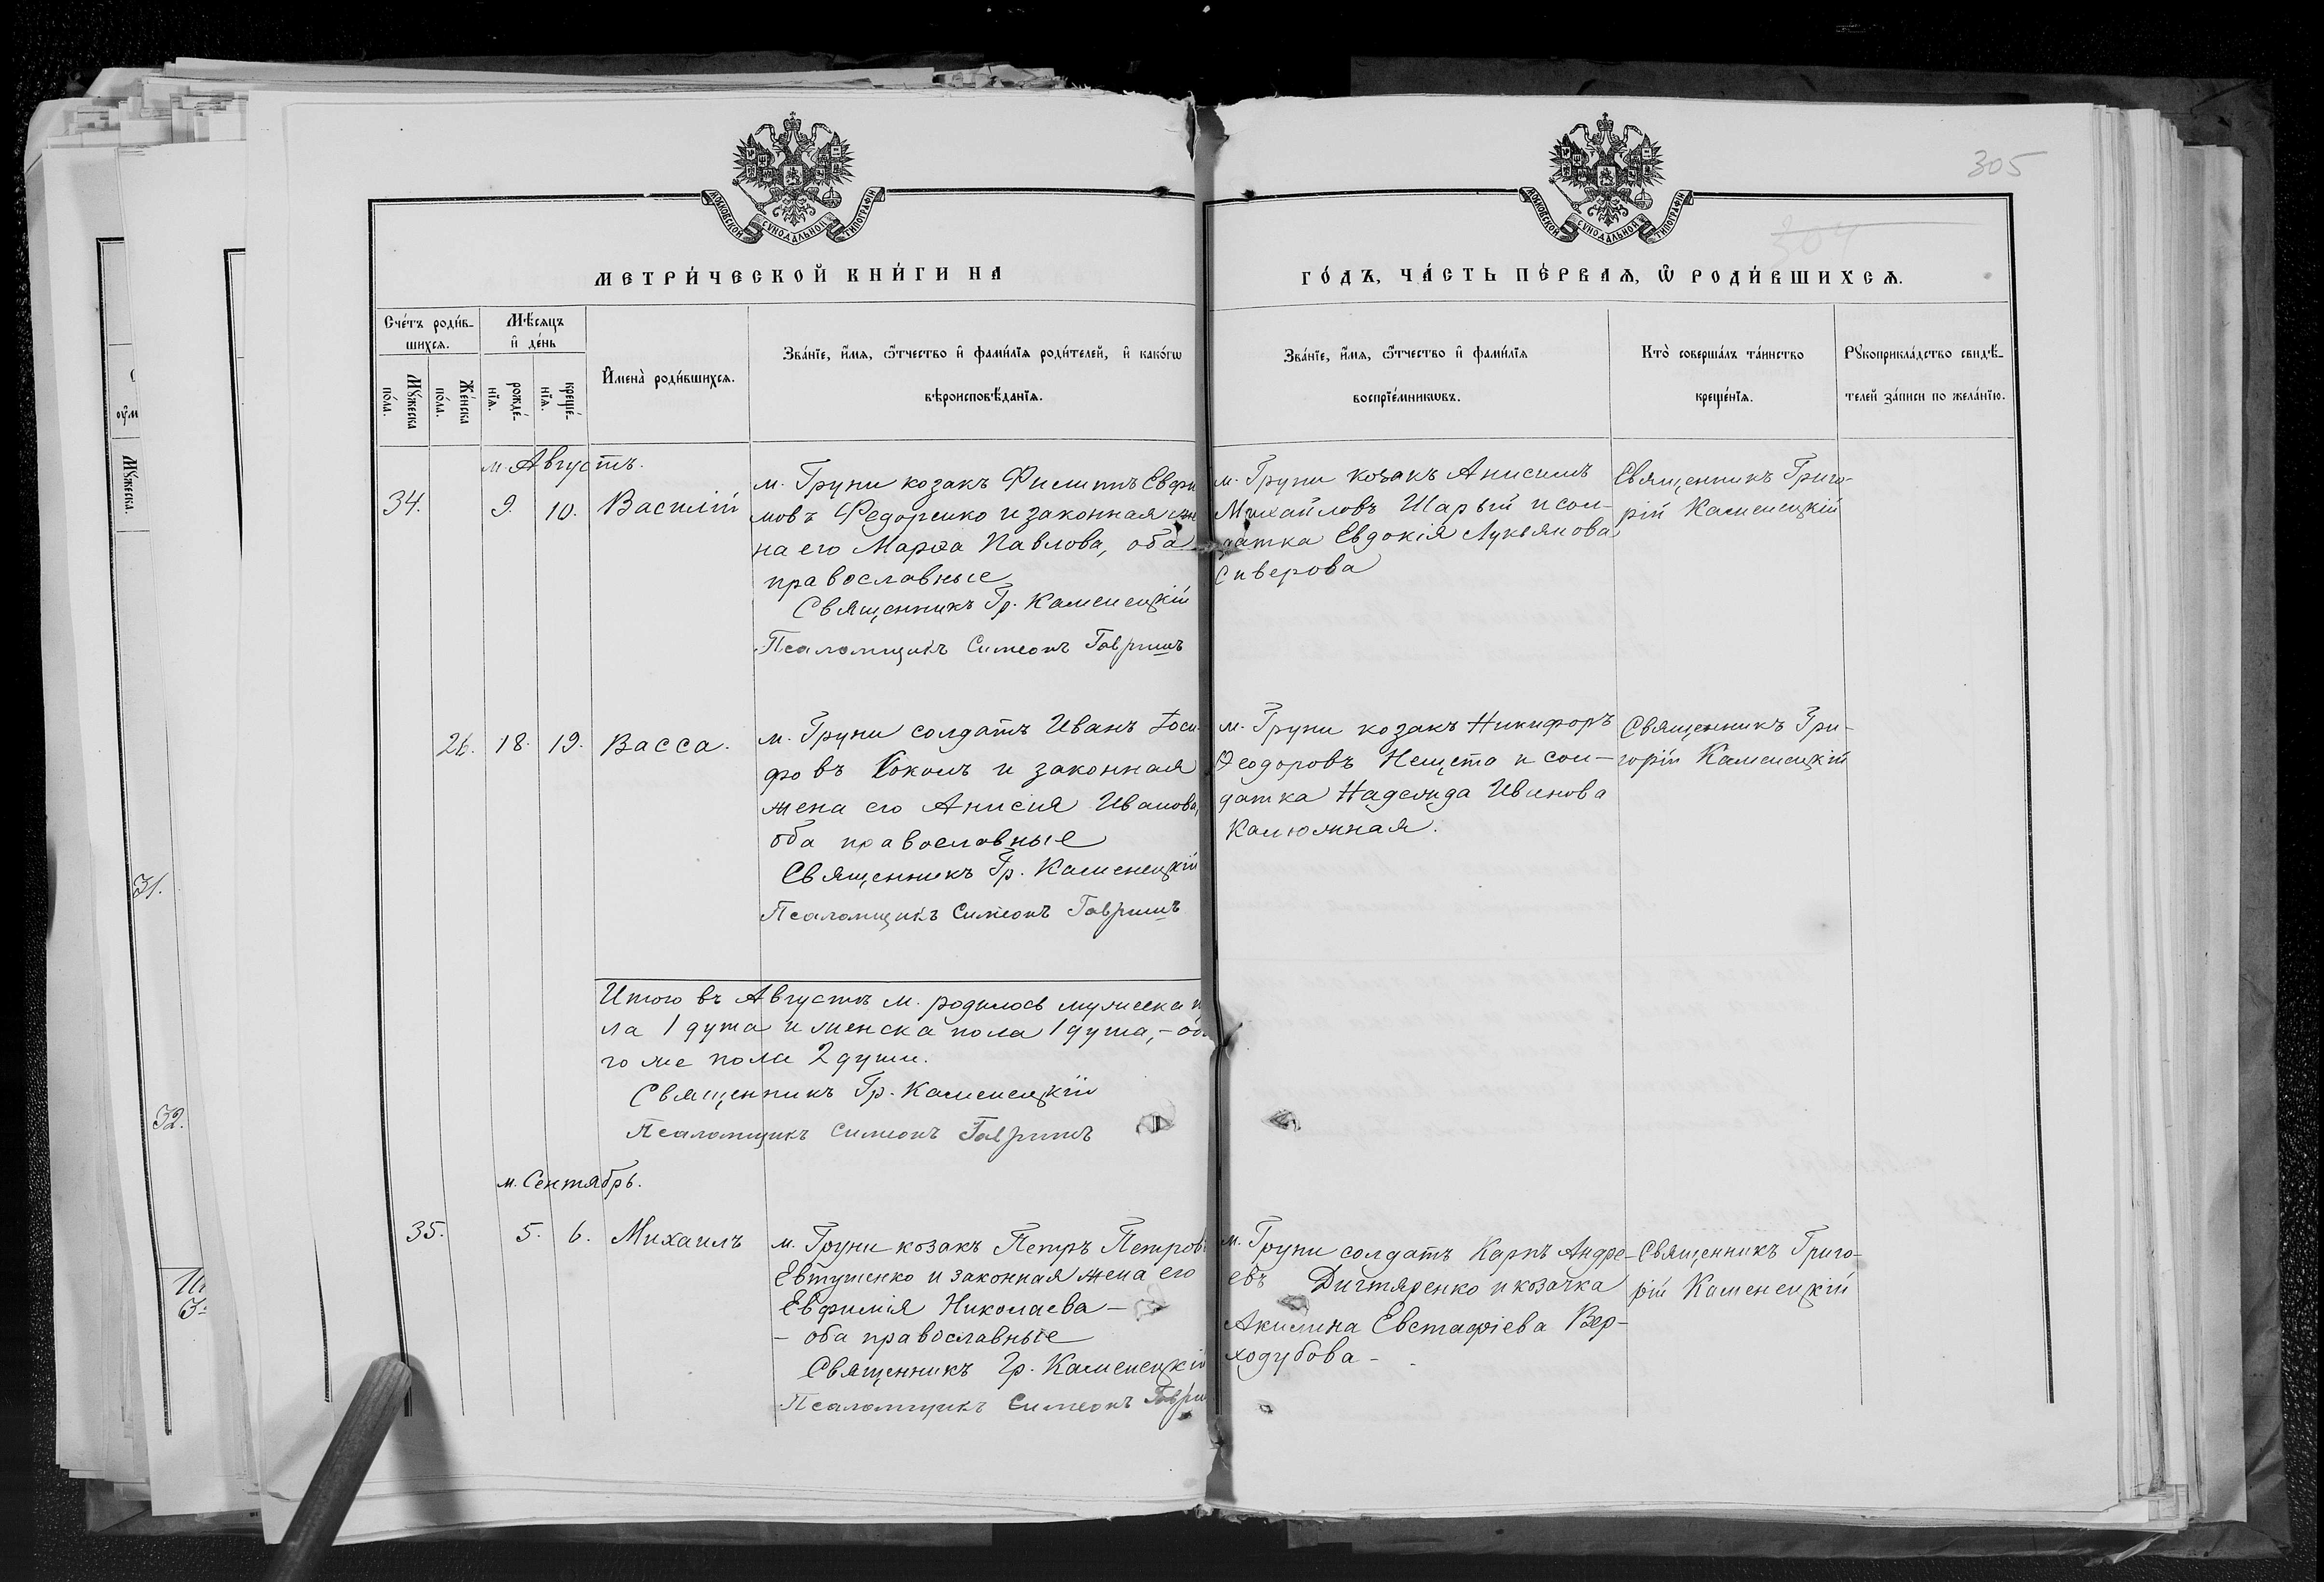 305
304
МОСКОВСКОЙ СУНОДАЛЬНОЙ ТИПОГРАФІИ
МОСКОВСКОЙ СУНОДАЛЬНОЙ ТИПОГРАФІИ
МЕТРИ́ЧЕСКОЙ КНИ́ГИ НА
ГО́ДЪ, ЧА́СТЬ ПЕ́РВАѦ, Ѿ РОДИ́ВШИХСѦ.
Сче́тъ роди́в-
шихсѧ.
Мѣ́сѧцъ
и҆ де́нь
Мꙋ́жеска
по́ла.
Же́нска
по́ла.
рожде́-
нїѧ.
креще́-
нїѧ.
И҆мена̀ роди́вшихсѧ.
Зва́нїе, и҆́мѧ, ѻ҆́тчество и҆ фами́лїѧ роди́телей, и҆ како́гѡ
вѣроисповѣ́данїѧ.
Зва́нїе, и҆́мѧ, ѻ҆́тчество и҆ фами́лїѧ
воспрїе́мникѡвъ.
Кто̀ соверша́лъ та́инство
креще́нїѧ.
Рꙋкоприкла́дство свидѣ́-
телей за́писи по жела́нїю.
м. Августъ.
34.
9.
10.
Василій
м. Груни козакъ Филиппъ Евфи
мовъ Федоренко и законная же
на его Марѳа Павлова, оба
православные
Священникъ Гр. Каменецкій
Псаломщикъ Симеонъ Гавришъ
м. Груни козакъ Анисимъ
Михайловъ Шарый и сол-
датка Евдокія Лукьянова
Сиверова
Священникъ Григо-
рій Каменецкій
26.
18.
19.
Васса.
м. Груни солдатъ Иванъ Іоси-
фовъ Соколъ и законная
жена его Анисія Иванова,
оба православные
Священникъ Гр. Каменецкій
Псаломщикъ Симеонъ Гавришъ
м. Груни козакъ Никифоръ
Ѳеодоровъ Нещета и сол-
датка Надежда Иванова
Калюжная.
Священникъ Гри-
горій Каменецкій
Итого въ Августѣ м. родилось мужеска п
ла 1 душа и женска пола 1 душа, – об
го же пола 2 души.
Священникъ Гр. Каменецкій
Псаломщикъ Симеонъ Гавришъ
м. Сентябрь.
35.
5.
6.
Михаилъ
м. Груни козакъ Петръ Петровъ
Евтушенко и законная жена его
Евфимія Николаева –
– оба православные
Священникъ Гр. Каменецкій
Псаломщикъ Симеонъ Гаври
м. Груни солдатъ Карпъ Андре-
евъ Дигтяренко и козачка
Акилина Евстафіева Вер-
ходубова –
Священникъ Григо-
рій Каменецкій
Мꙋ́жеска.
31.
32.